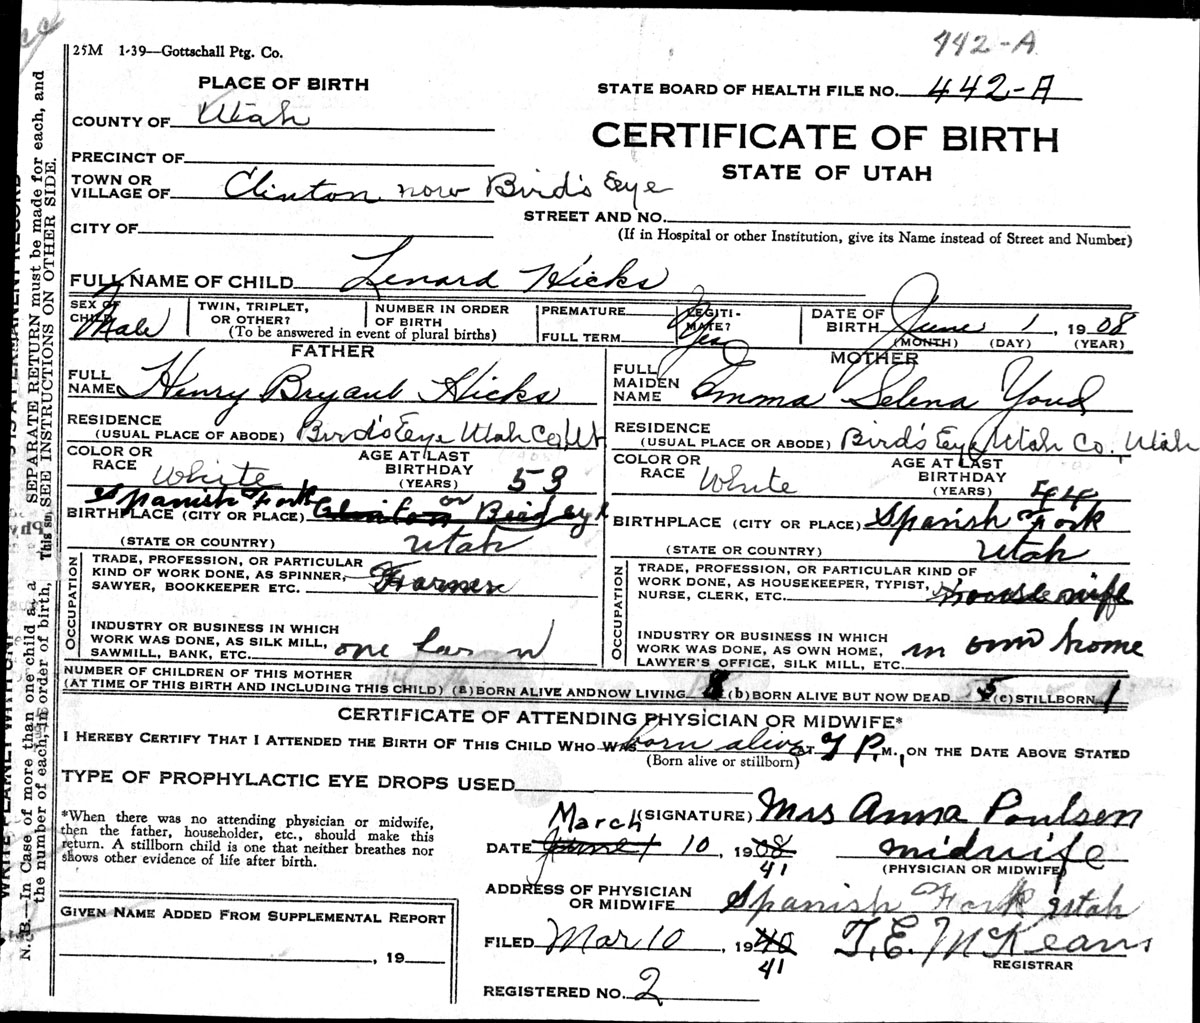 442-A
25M 1-39—Gottschall Ptg. Co.
PLACE OF BIRTH
STATE BOARD OF HEALTH FILE NO. 442-A
COUNTY OF Utah
CERTIFICATE OF BIRTH
STATE OF UTAH
PRECINCT OF
TOWN OR VILLAGE OF Clinton now Bird's Eye
STREET AND NO.
(If in Hospital or other Institution, give its Name instead of Street and Number)
CITY OF
FULL NAME OF CHILD Lenard Hicks
SEX OF CHILD Male
TWIN, TRIPLET, OR OTHER?
NUMBER IN ORDER OF BIRTH
(To be answered in event of plural births)
PREMATURE
FULL TERM
LEGITI-MATE? Yes
DATE OF BIRTH June 1, 1908
(MONTH) (DAY) (YEAR)
FATHER
FULL NAME Henry Bryant Hicks
RESIDENCE (USUAL PLACE OF ABODE) Bird's Eye Utah Co Ut
COLOR OR RACE White
AGE AT LAST BIRTHDAY (YEARS) 53
Spanish Fork
BIRTHPLACE (CITY OR PLACE) Clinton or Bird eye
(STATE OR COUNTRY) Utah
OCCUPATION
TRADE, PROFESSION, OR PARTICULAR KIND OF WORK DONE, AS SPINNER, SAWYER, BOOKKEEPER ETC. Farmer
INDUSTRY OR BUSINESS IN WHICH WORK WAS DONE, AS SILK MILL, SAWMILL, BANK, ETC.
MOTHER
FULL MAIDEN NAME Emma Selena Youd
RESIDENCE (USUAL PLACE OR ABODE) Bird's Eye Utah Co, Utah
COLOR OR RACE White
AGE AT LAST BIRTHDAY (YEARS) 44
BIRTHPLACE (CITY OR PLACE) Spanish Fork
(STATE OR COUNTRY) Utah
OCCUPATION
TRADE, PROFESSION, OR PARTICULAR KIND OF WORK DONE, AS HOUSEKEEPER, TYPIST, NURSE, CLERK, ETC. Housewife
INDUSTRY OR BUSINESS IN WHICH WORK WAS DONE, AS OWN HOME, LAWYER'S OFFICE, SILK MILL, ETC. in own home
NUMBER OF CHILDREN OF THIS MOTHER
(AT TIME OF THIS BIRTH AND INCLUDING THIS CHILD) (a) BORN ALIVE AND NOW LIVING 8 (b) BORN ALIVE BUT NOW DEAD 5 (c) STILLBORN 1
CERTIFICATE OF ATTENDING PHYSICIAN OR MIDWIFE*
I HEREBY CERTIFY THAT I ATTENDED THE BIRTH OF THIS CHILD WHO WAS born alive AT 7 P.M., ON THE DATE ABOVE STATED
(Born alive or stillborn)
TYPE OF PROPHYLACTIC EYE DROPS USED
*When there was no attending physician or midwife, then the father, householder, etc., should make this return. A stillborn child is one that neither breathes nor shows other evidence of life after birth.
(SIGNATURE) Mrs Anna Poulsen
March
DATE June 1 10, 1908
41
midwife
(PHYSICIAN OR MIDWIFE)
ADDRESS OF PHYSICIAN OR MIDWIFE Spanish Fork Utah
GIVEN NAME ADDED FROM SUPPLEMENTAL REPORT
, 19
FILED Mar 10, 1940
41
T. E. McKean
REGISTRAR
REGISTERED NO. 2
N. B.—In Case of more than one child at a SEPARATE RETURN must be made for each, and
the number of each, in order of birth, SEE INSTRUCTIONS ON OTHER SIDE.